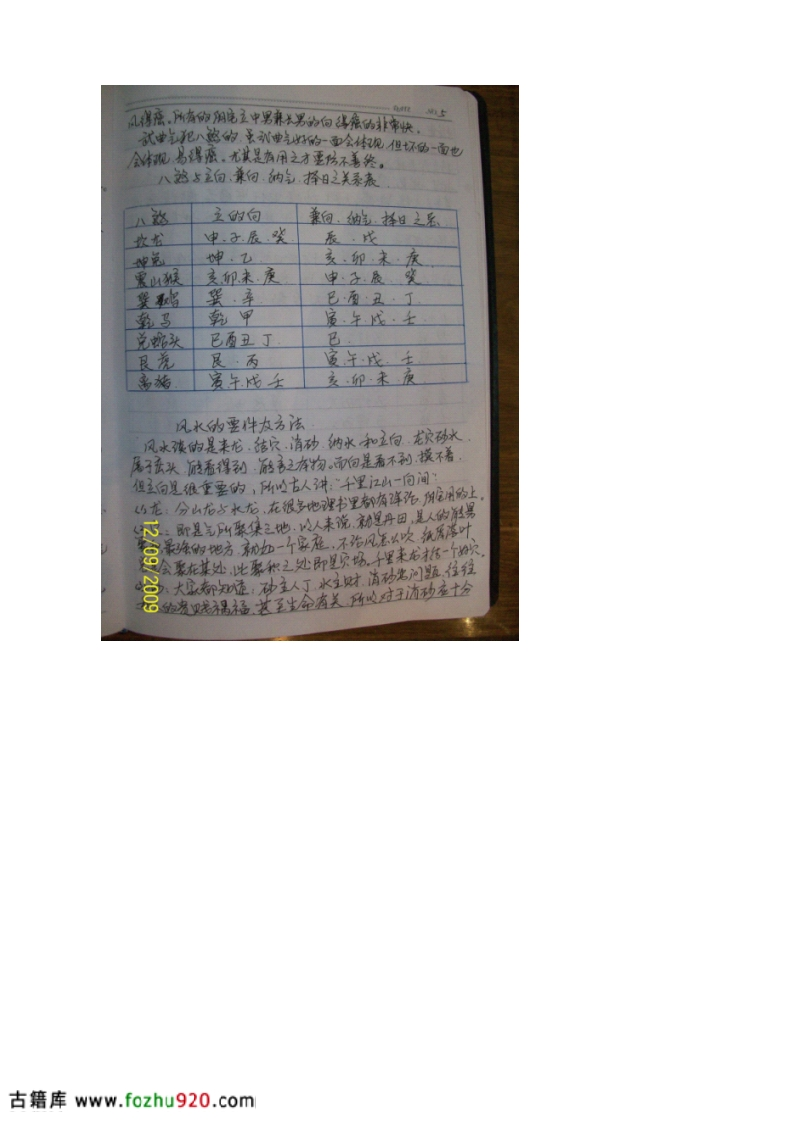 风得癌。所有的阴宅立中男兼长男的向 得癌的非常快。
武曲气犯八煞的 虽武曲气好的一面会体现 但坏的一面也
会体现 易得癌。尤其是有用之才要防不善终。
八煞与立向、兼向、纳气、择日之关系表
八煞 立的向 兼向、纳气、择日之忌
坎龙 申、子、辰、癸 辰、戌
坤兔 坤、乙 亥、卯、未、庚
震山猴 亥、卯、未、庚 申、子、辰、癸
巽鸡 巽、辛 巳、酉、丑、丁
乾马 乾 甲 寅、午、戌、壬
兑蛇头 巳酉丑 丁 巳
艮虎 艮、丙 寅、午、戌、壬
离猪 寅、午、戌 壬 亥、卯、未、庚
风水的要件及方法
风水讲的是来龙、结穴、消砂、纳水、和立向、龙穴砂水
属于峦头、能看得到、能言之本物。而向是看不到、摸不着、
但立向是很重要的，所以古人讲："千里江山一向间"
龙：分山龙与水龙，在很多地理书里都有详论
即是气所聚集之地，以人来说，就是丹田，是人的能量
最强的地方，就如一个家庭，不论风怎么吹 纸屑落叶、
会聚在某处，此聚积之处即是穴场，千里来龙 一个好穴。
大家都知道：砂主人丁，水主财，消砂 问题，往往
的贵贱祸福，甚至生命有关，所以对于消砂 十分
12/09/2009
古籍库 www.fozhu920.com